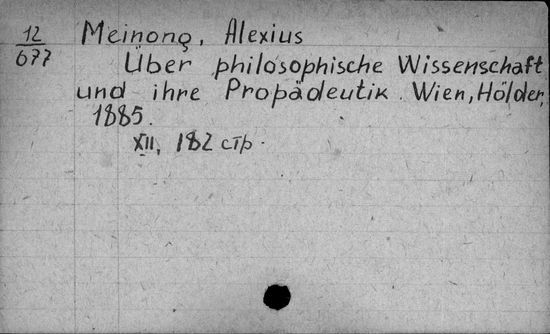 12/677 Meinong, Alexius
Über philosophische Wissenschaft
und ihre Propädeutik. Wien, Hölder,
1885.
XII, 182 стр.